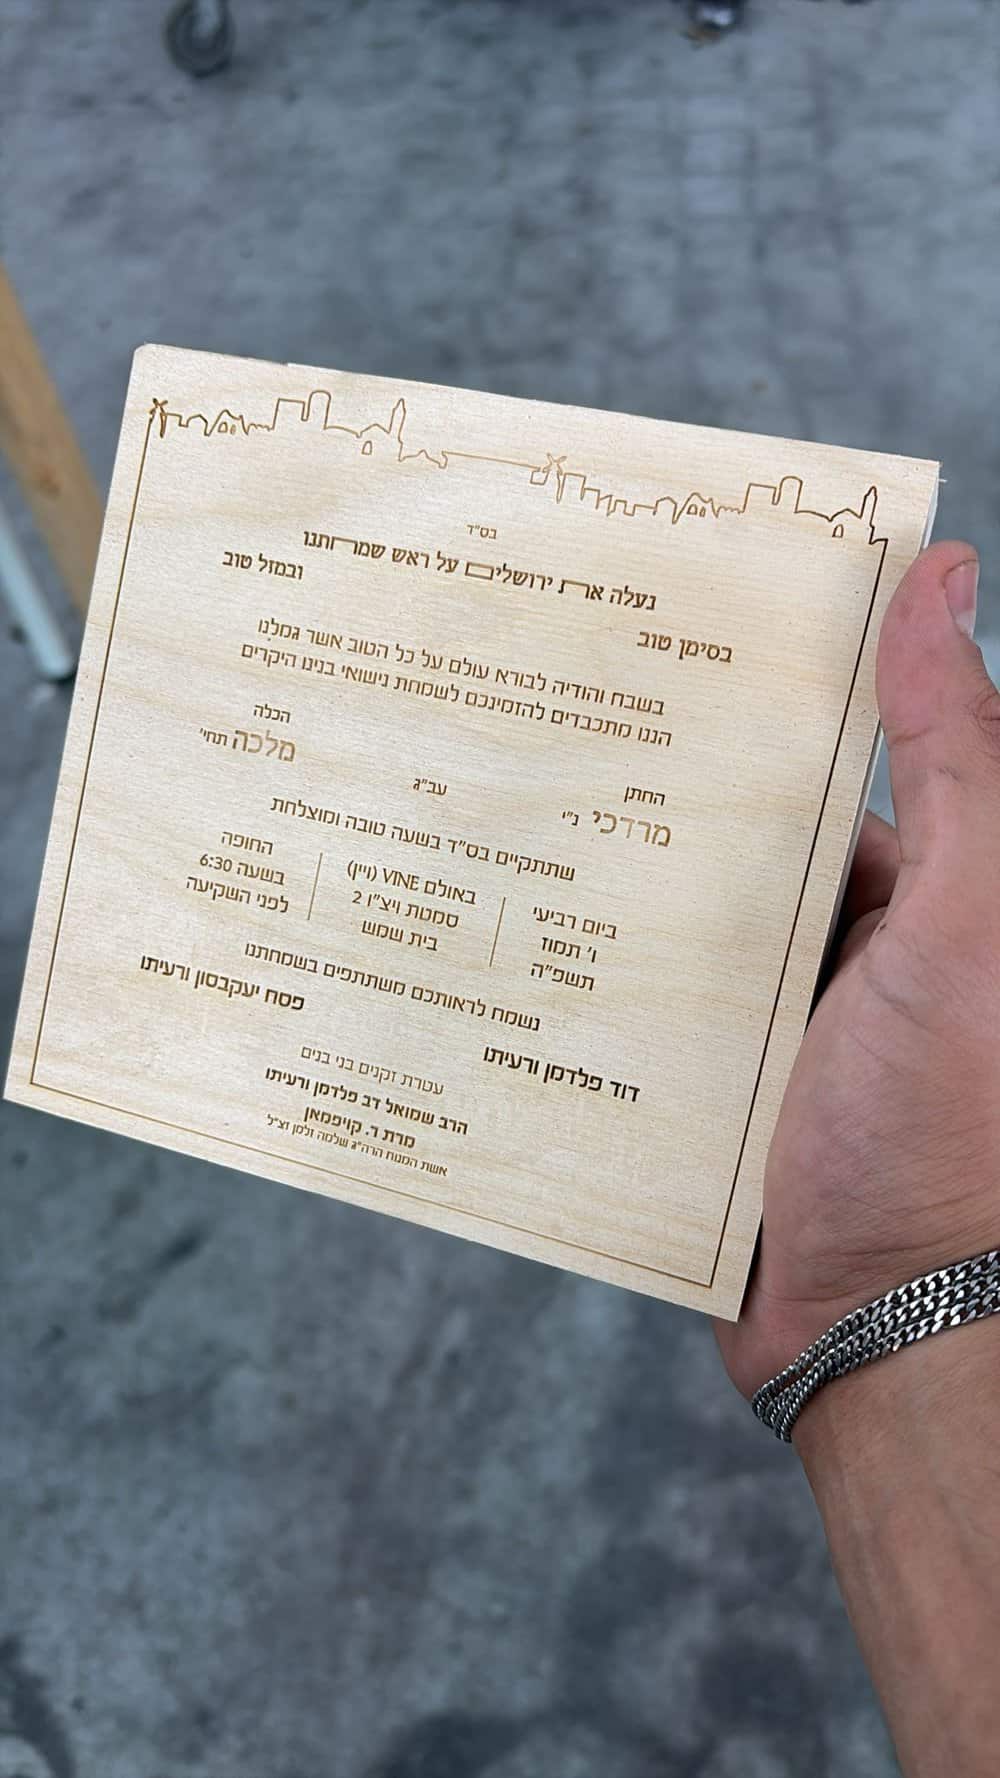 בס"ד
נעלה את ירושלים על ראש שמחתנו
בסימן טוב
ובמזל טוב
בשבח והודיה לבורא עולם על כל הטוב אשר גמלנו
הננו מתכבדים להזמינכם לשמחת נישואי בנינו היקרים
החתן
מרדכי נ"י
עב"ג
הכלה
מלכה תחי'
שתתקיים בס"ד בשעה טובה ומוצלחת
ביום רביעי
ו' תמוז
תשפ"ה
באולם VINE (ויין)
סמטת ויצ"ו 2
בית שמש
החופה
בשעה 6:30
לפני השקיעה
נשמח לראותכם משתתפים בשמחתנו
דוד פלדמן ורעיתו
פסח יעקבסון ורעיתו
עטרת זקנים בני בנים
הרב שמואל דב פלדמן ורעיתו
מרת ר. קויפמאן
אשת המנוח הרה"ג שלמה זלמן זצ"ל